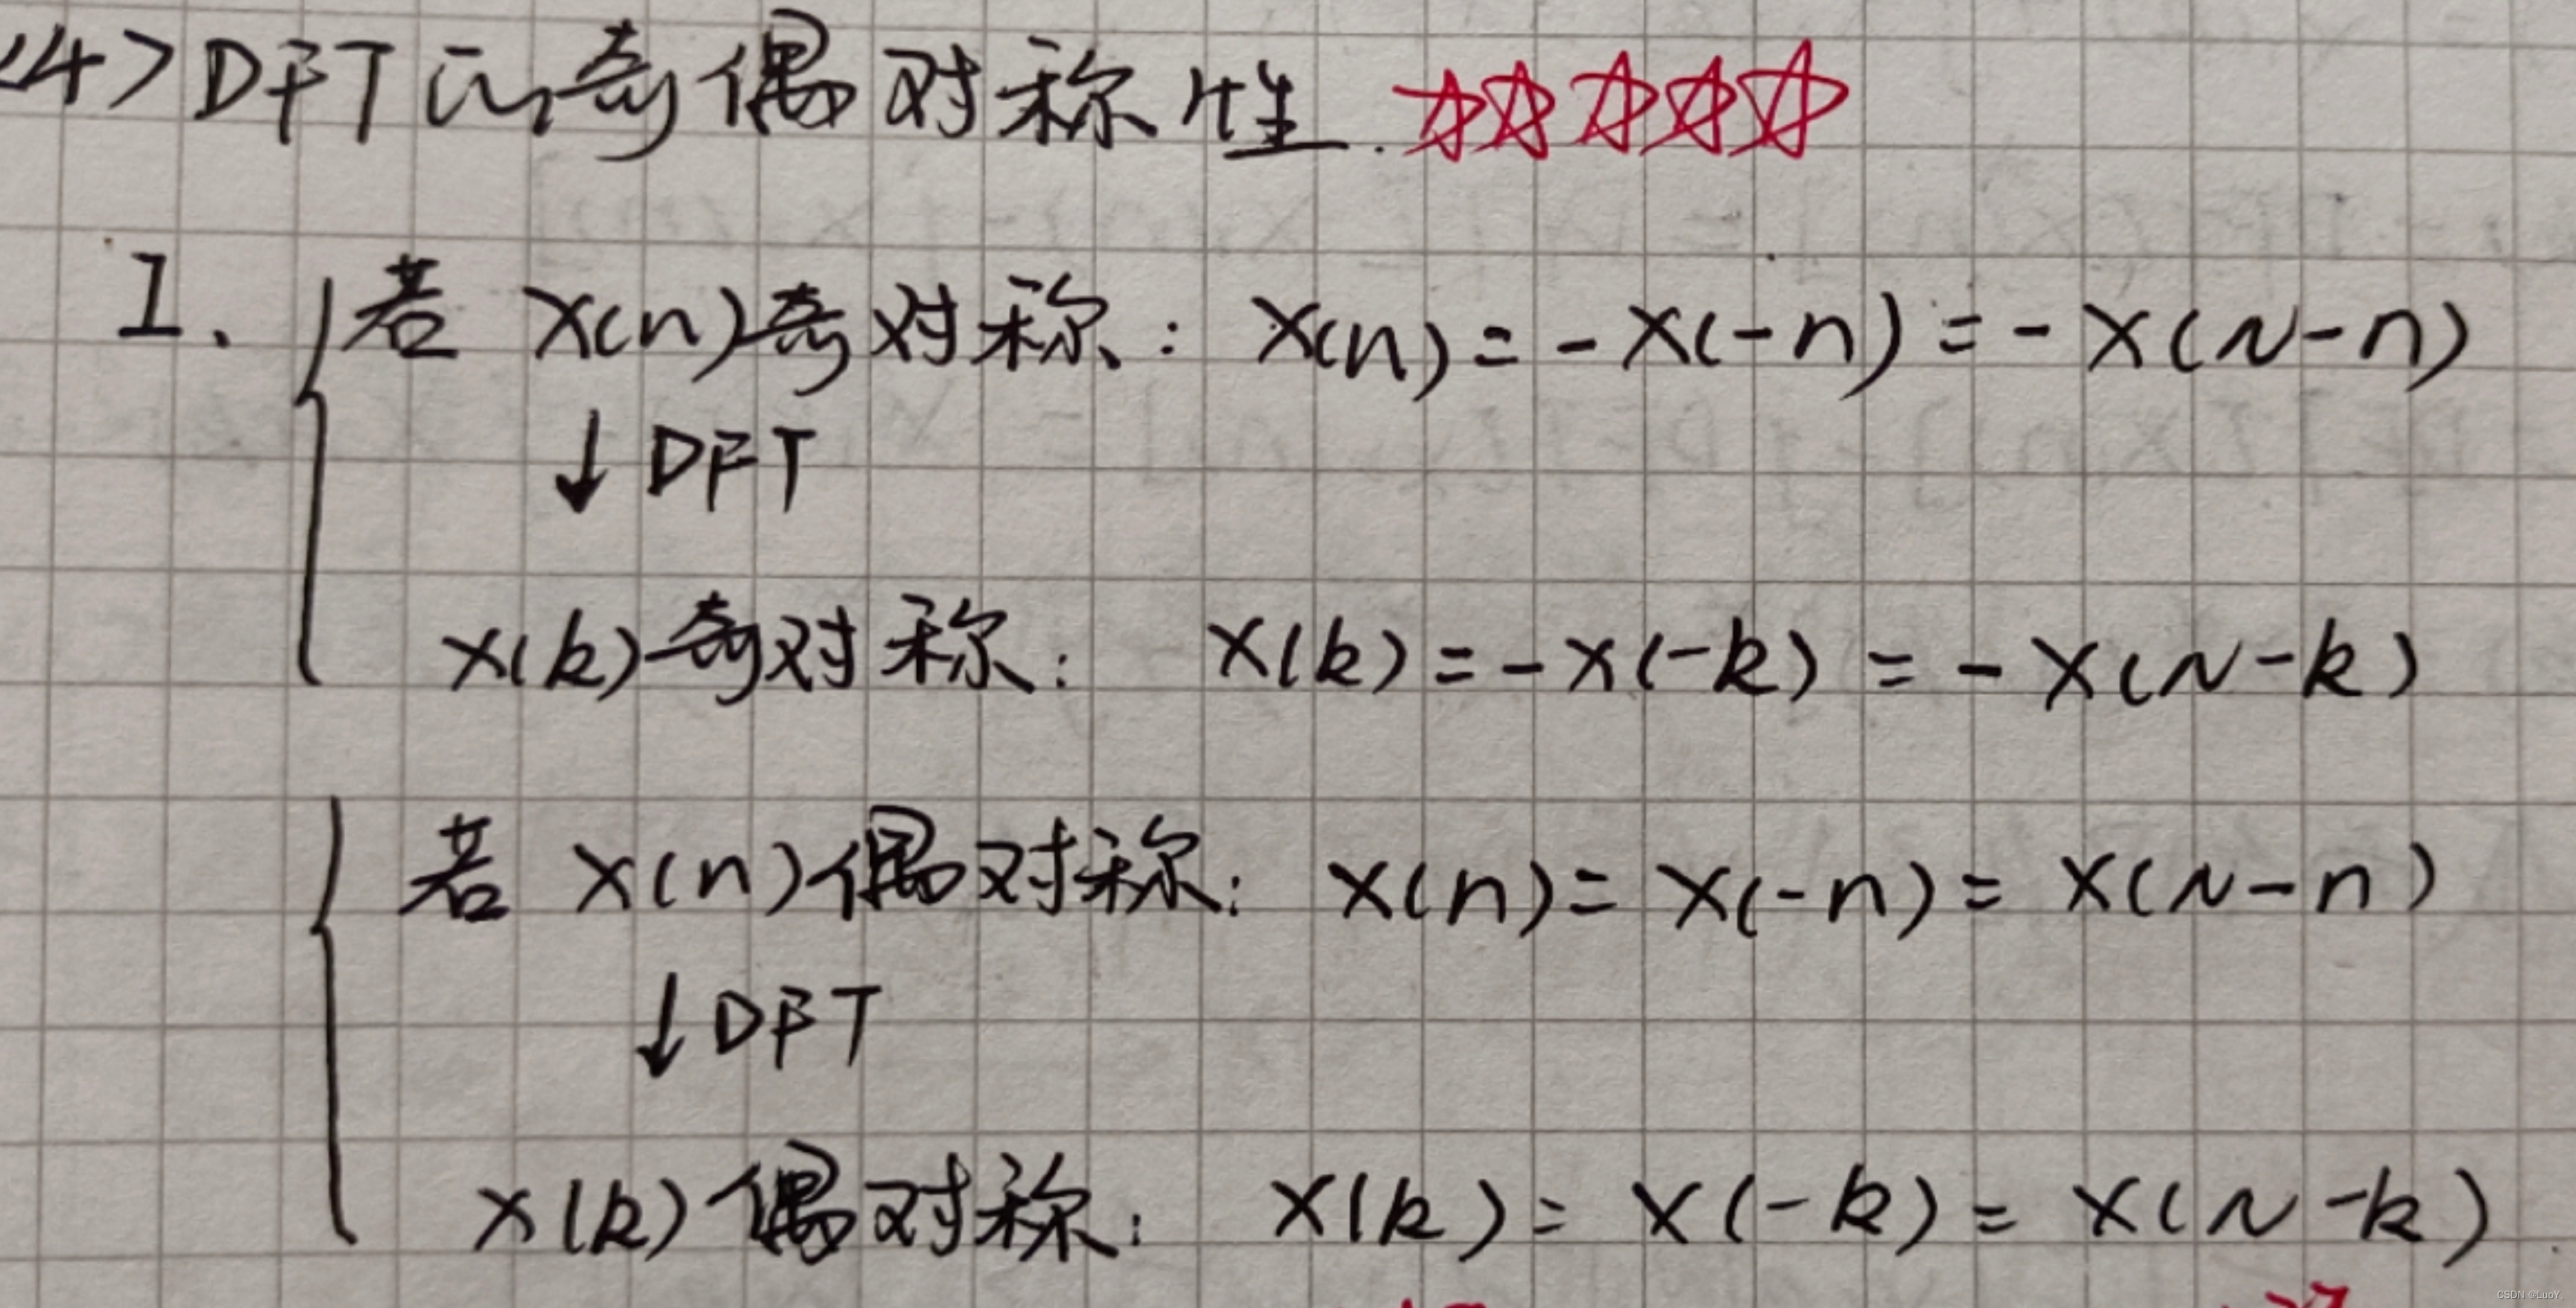 <4>DFT的奇偶对称性.☆☆☆☆☆
I. 若 x(n)奇对称: x(n)=-x(-n)=-x(N-n)
↓DFT
X(k)奇对称: X(k)=-X(-k)=-X(N-k)
若 x(n)偶对称: x(n)=x(-n)=x(N-n)
↓DFT
X(k)偶对称: X(k)=X(-k)=X(N-k)
CSDN @LuoY.